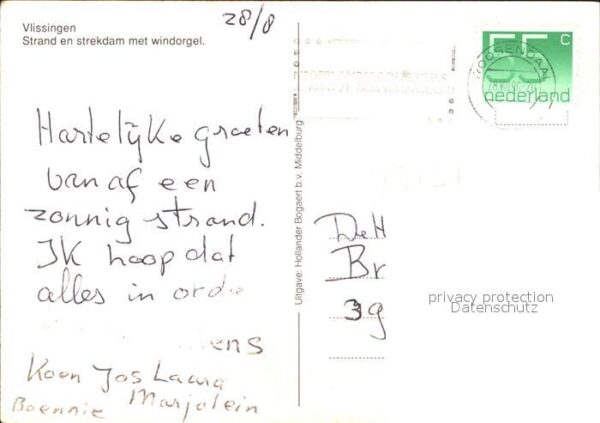 Vlissingen
Strand en strekdam met windorgel.
28/8
55 c
nederland
ROOSENDAAL
Hartelijke groeten
vanaf een
zonnig strand.
Ik hoop dat
alles in orde
ens
Koen Jos Laura
Boennie Marjolein
Uitgave: Hollander Bogaert b.v. Middelburg
De H
Br
39
privacy protection
Datenschutz